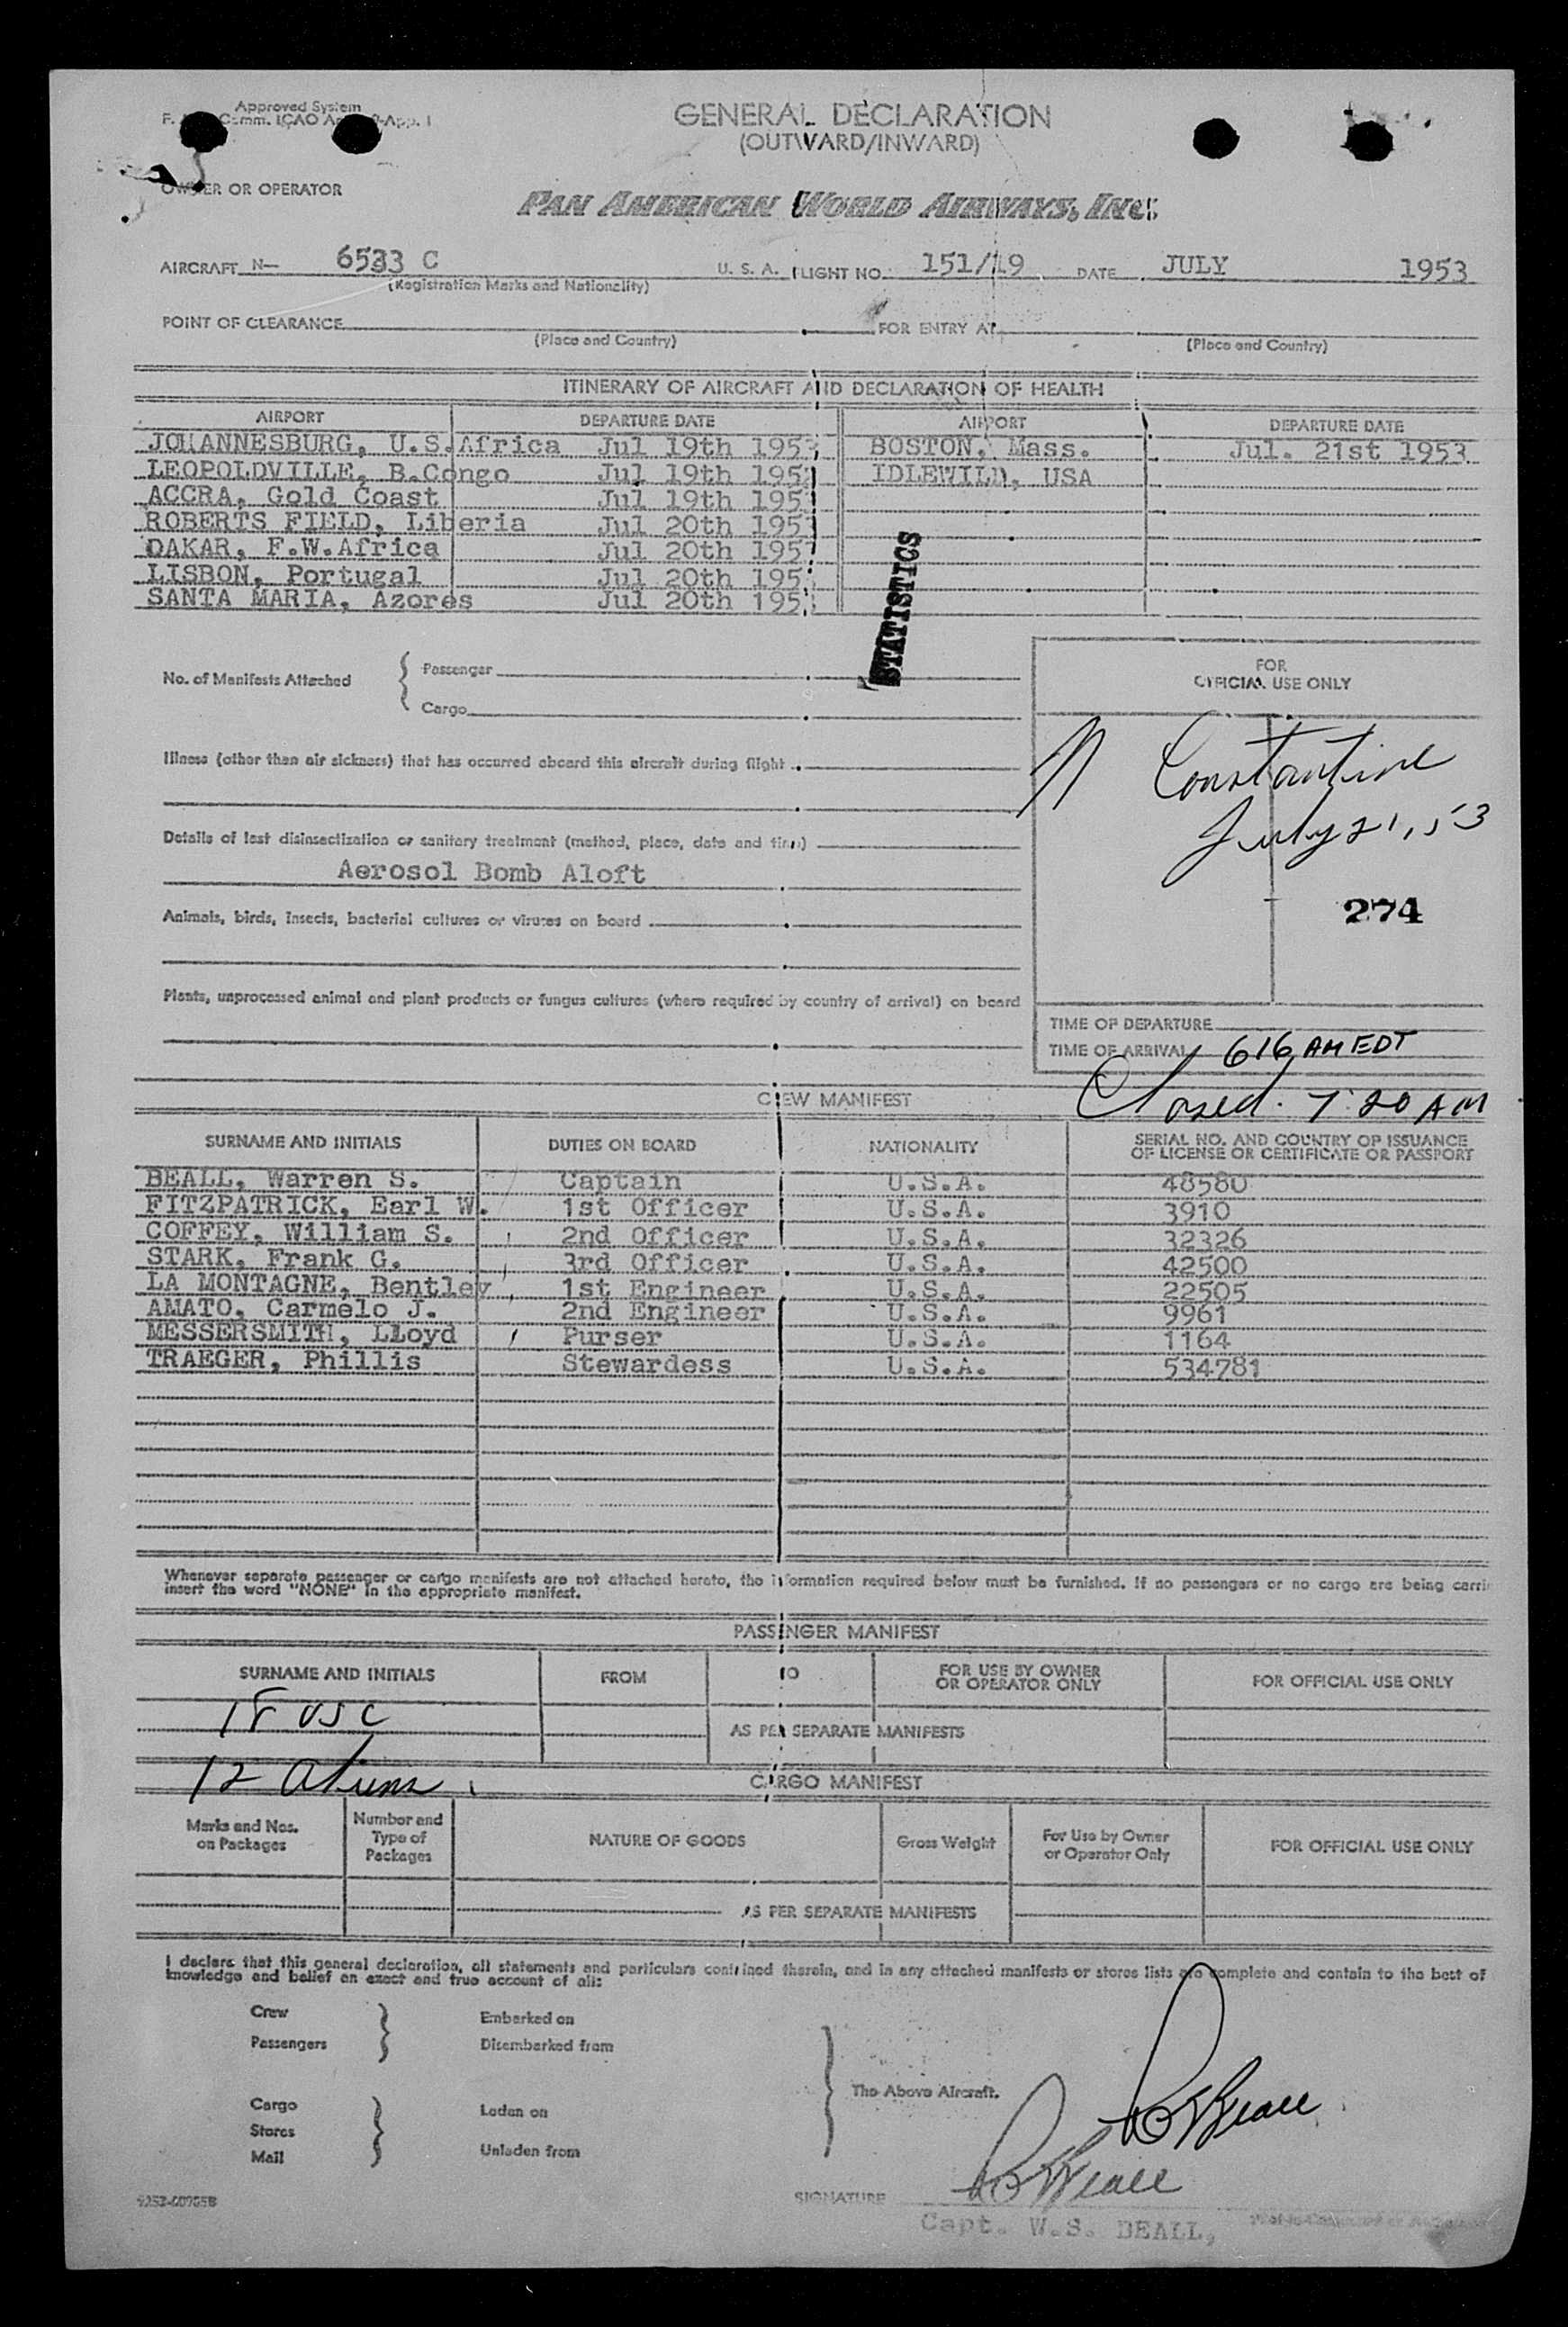 Approved System
GENERAL DECLARATION
(OUTWARD/INWARD)
OWNER OR OPERATOR
PAN AMERICAN WORLD AIRWAYS, INC.
AIRCRAFT N— 6533 C U. S. A. FLIGHT NO. 151/19 DATE JULY 1953
(Registration Marks and Nationality)
POINT OF CLEARANCE FOR ENTRY AT
(Place and Country) (Place and Country)
ITINERARY OF AIRCRAFT AND DECLARATION OF HEALTH
AIRPORT DEPARTURE DATE AIRPORT DEPARTURE DATE
JOHANNESBURG, U.S.Africa Jul 19th 1953 BOSTON, Mass. Jul. 21st 1953
LEOPOLDVILLE, B.Congo Jul 19th 1953 IDLEWILD, USA
ACCRA, Gold Coast Jul 19th 195
ROBERTS FIELD, Liberia Jul 20th 195
DAKAR, F.W.Africa Jul 20th 195
LISBON, Portugal Jul 20th 195
SANTA MARIA, Azores Jul 20th 195
STATISTICS
No. of Manifests Attached { Passenger
Cargo
FOR
OFFICIAL USE ONLY
N Constantine
July 21, 53
274
Illness (other than air sickness) that has occurred aboard this aircraft during flight
Details of last disinsectization or sanitary treatment (method, place, date and time)
Aerosol Bomb Aloft
Animals, birds, insects, bacterial cultures or viruses on board
Plants, unprocessed animal and plant products or fungus cultures (where required by country of arrival) on board
TIME OF DEPARTURE
TIME OF ARRIVAL 616 AM EDT
Closed. 7:20 AM
CREW MANIFEST
SURNAME AND INITIALS DUTIES ON BOARD NATIONALITY SERIAL NO. AND COUNTRY OF ISSUANCE
OF LICENSE OR CERTIFICATE OR PASSPORT
BEALL, Warren S. Captain U.S.A. 48580
FITZPATRICK, Earl W. 1st Officer U.S.A. 3910
COFFEY, William S. 2nd Officer U.S.A. 32326
STARK, Frank G. 3rd Officer U.S.A. 42500
LA MONTAGNE, Bentley 1st Engineer U.S.A. 22505
AMATO, Carmelo J. 2nd Engineer U.S.A. 9961
MESSERSMITH, LLoyd Purser U.S.A. 1164
TRAEGER, Phillis Stewardess U.S.A. 534781
Whenever separate passenger or cargo manifests are not attached hereto, the information required below must be furnished. If no passengers or no cargo are being carri
insert the word "NONE" in the appropriate manifest.
PASSENGER MANIFEST
SURNAME AND INITIALS FROM TO FOR USE BY OWNER
OR OPERATOR ONLY FOR OFFICIAL USE ONLY
18 USC
AS PER SEPARATE MANIFESTS
12 Aliens
CARGO MANIFEST
Marks and Nos.
on Packages Number and
Type of
Packages NATURE OF GOODS Gross Weight For Use by Owner
or Operator Only FOR OFFICIAL USE ONLY
AS PER SEPARATE MANIFESTS
I declare that this general declaration, all statements and particulars contained therein, and in any attached manifests or stores lists are complete and contain to the best of
knowledge and belief an exact and true account of all:
Crew Embarked on
Passengers Disembarked from
The Above Aircraft.
Cargo Laden on
Stores
Mail Unladen from
WSBeall
SIGNATURE WSBeall
Capt. W.S. BEALL,